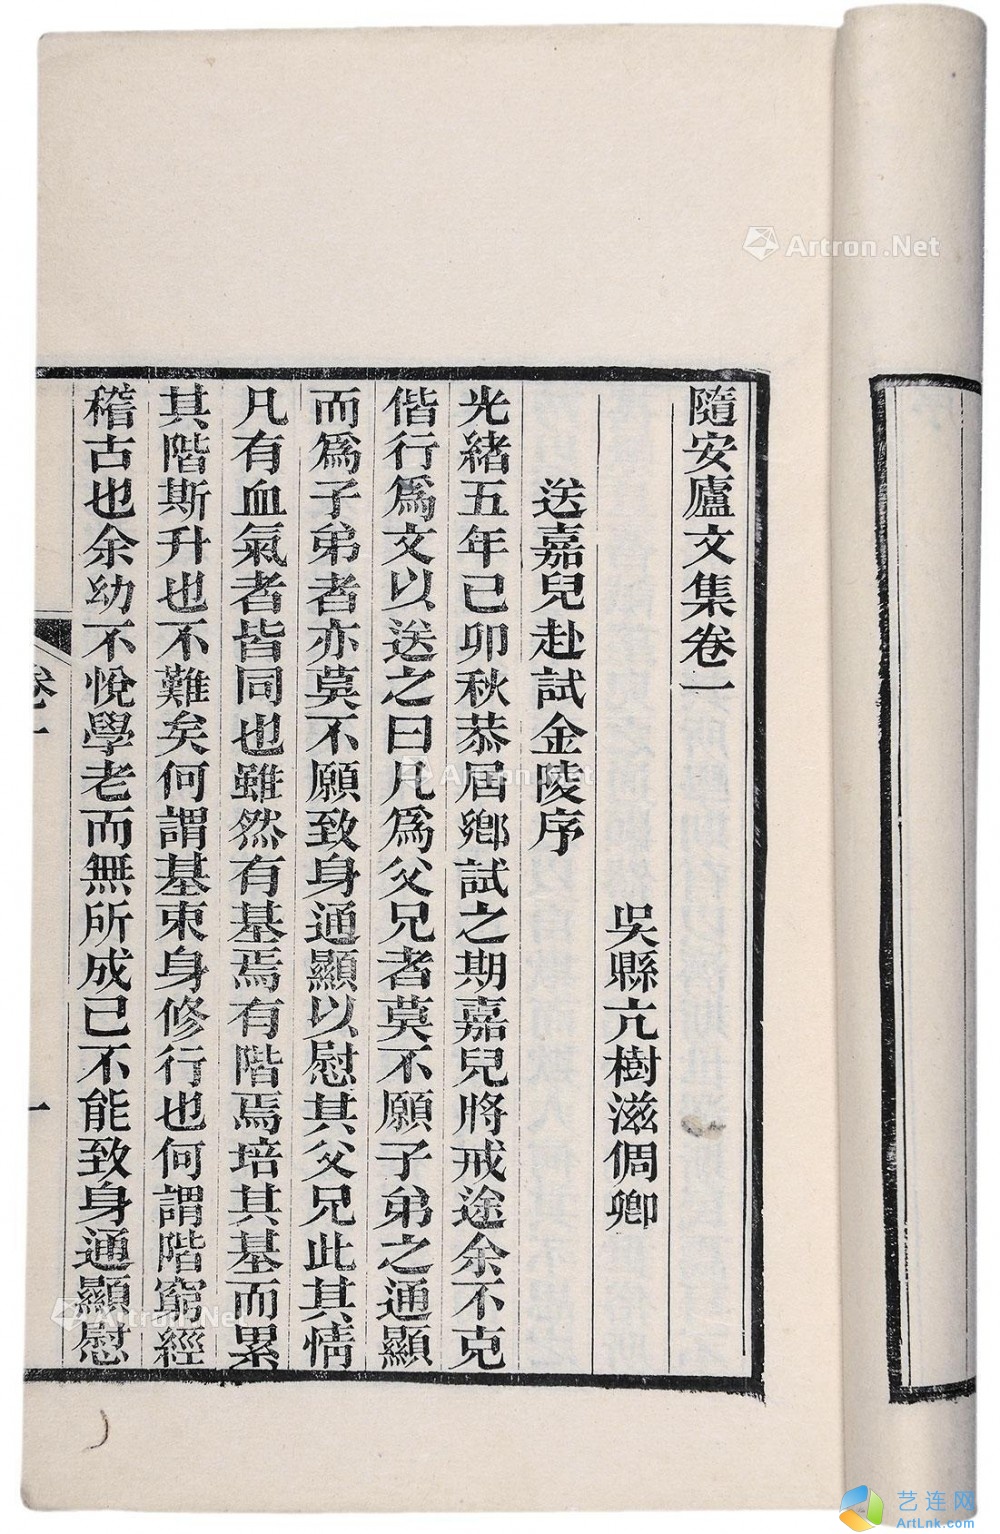 隨安廬文集卷一
吳縣亢樹滋倜卿
送嘉兒赴試金陵序
光緒五年己卯秋恭屆鄉試之期嘉兒將戒途余不克
偕行爲文以送之曰凡爲父兄者莫不願子弟之通顯
而爲子弟者亦莫不願致身通顯以慰其父兄此其情
凡有血氣者皆同也雖然有基焉有階焉培其基而累
其階斯升也不難矣何謂基束身修行也何謂階窮經
稽古也余幼不悅學老而無所成己不能致身通顯慰
卷一
一
Artron.Net
Artron.Net
Artron.Net
艺连网
ArtLnk.com